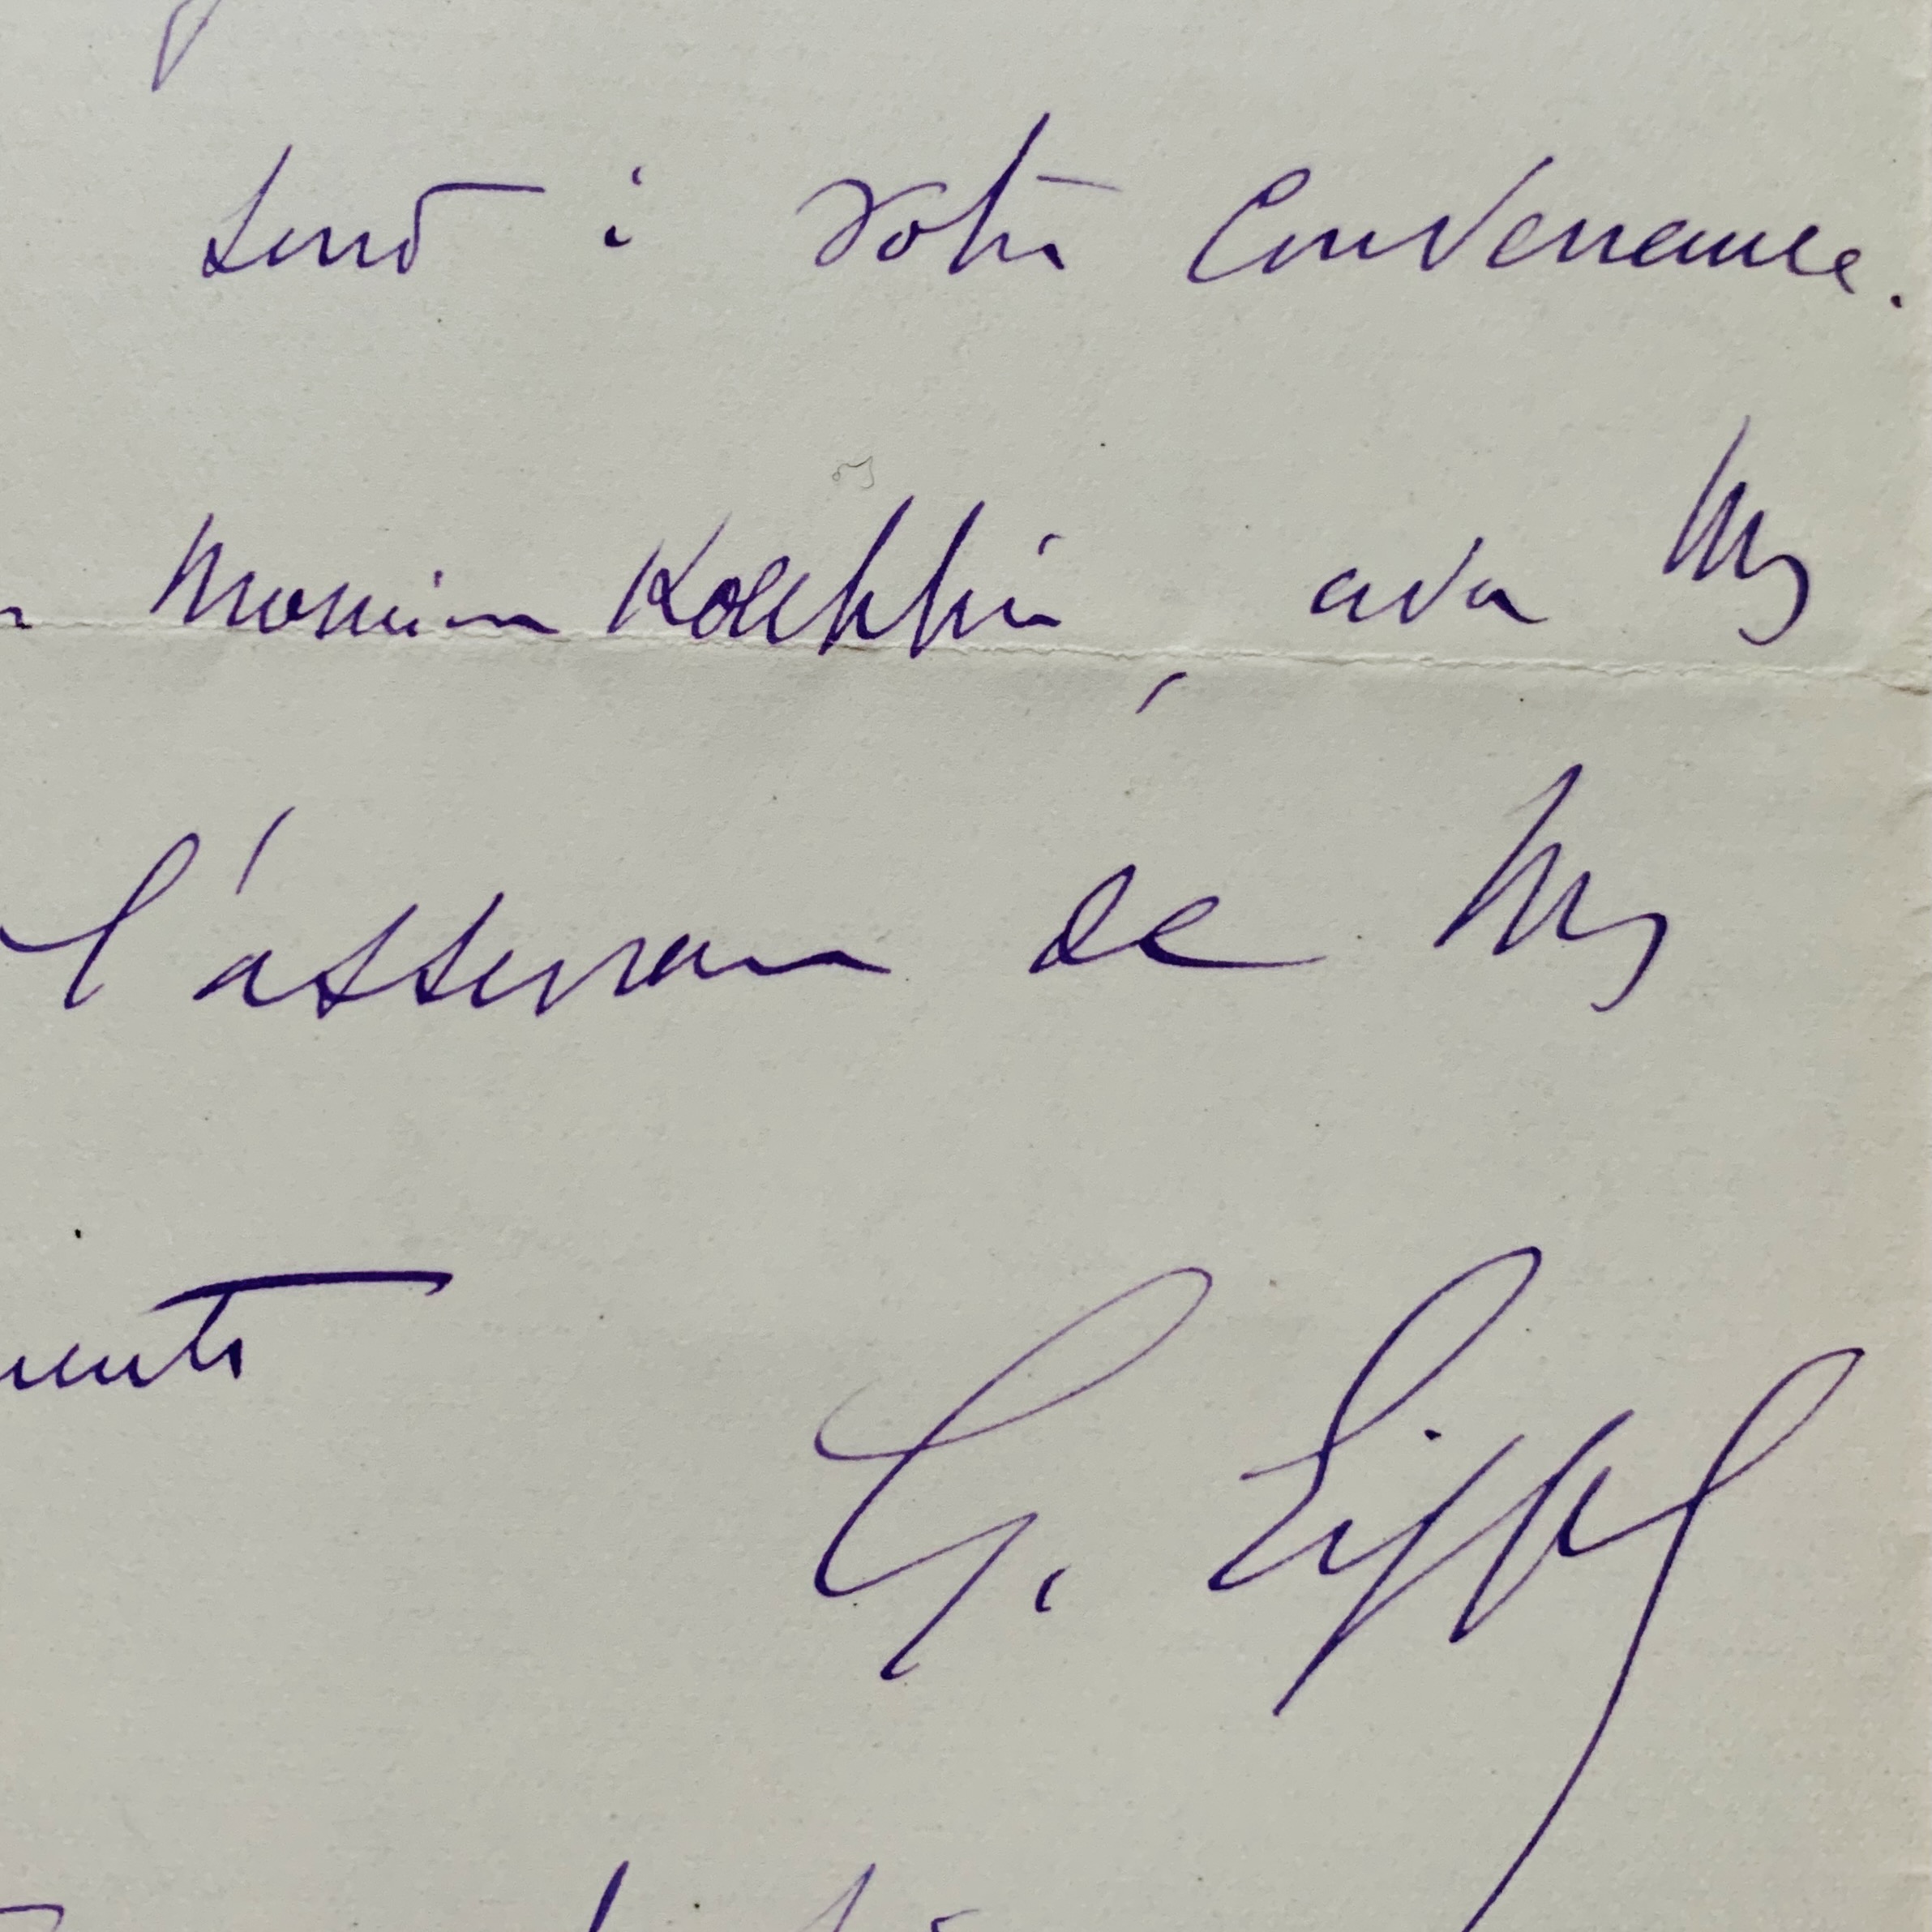 sera à votre convenance.
Monsieur Koechlin, avec mes
l'assurance de mes
G. Eiffel